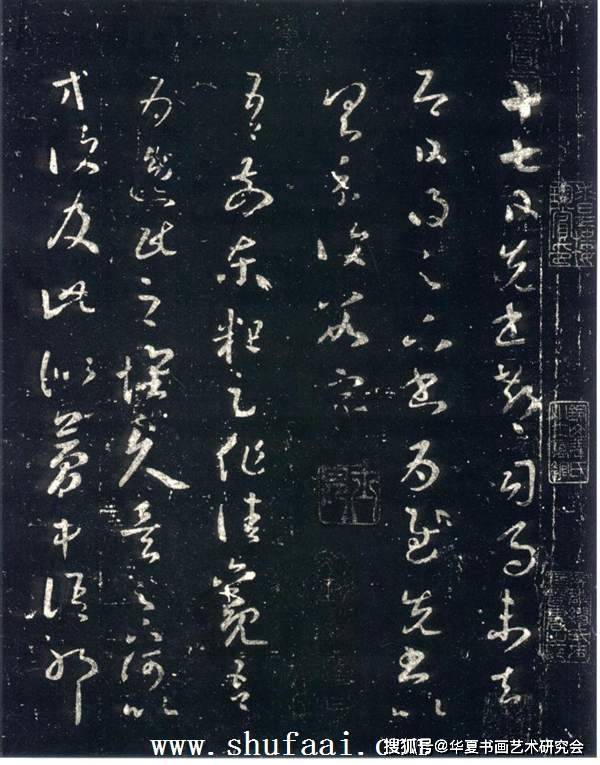 十七日先书郗司马未去
即日得足下书为慰先书以
具示复数字
吾前东粗足作佳观吾
为逸民之怀久矣足下何以
方复及此似梦中语耶
www.shufaai.com
搜狐号@华夏书画艺术研究会